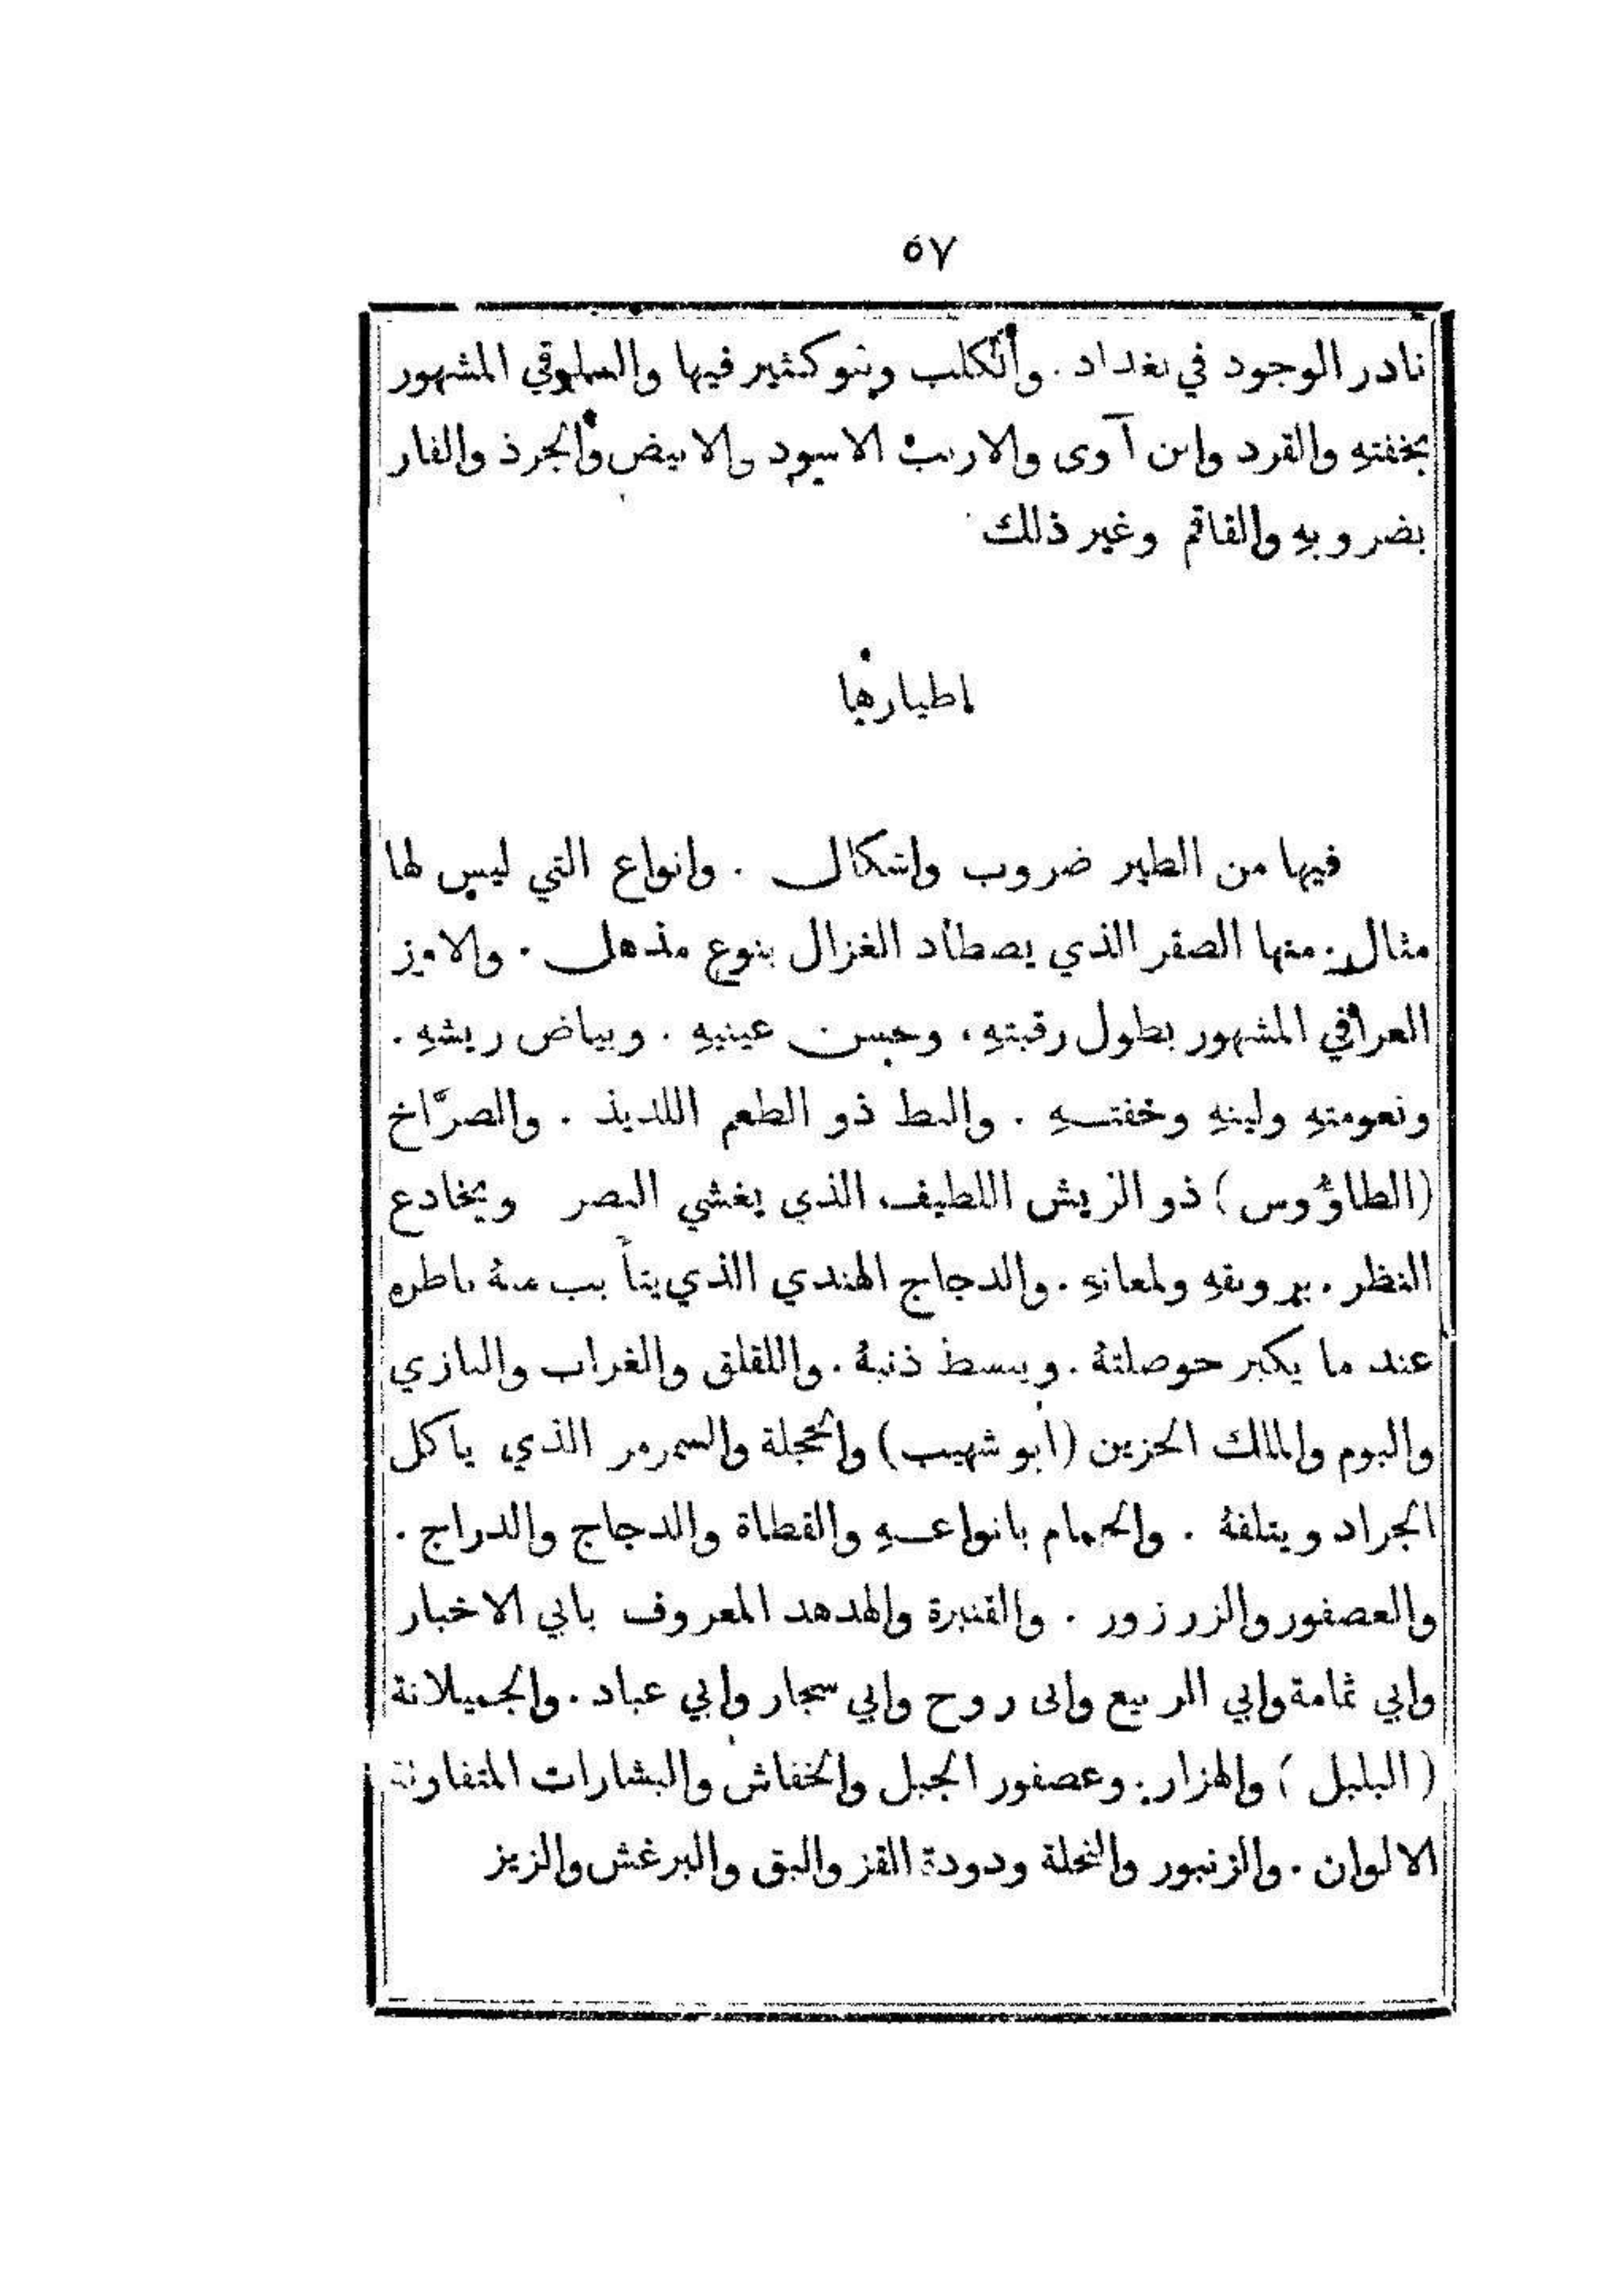 ٥٧
نادر الوجود في بغداد . والكلب وهو كثير فيها والسلوقي المشهور
بخفتهِ والقرد وابن آوى والارنب الاسود والابيض والجرذ والفار
بضروبهِ والقاقم وغير ذلك
اطيارها
فيها من الطير ضروب واشكال . وانواع التي ليس لها
مثال . منها الصقر الذي يصطاد الغزال بنوع مذهل . والاوز
العراقي المشهور بطول رقبتهِ ، وحسن عينيهِ . وبياض ريشهِ .
ونعومتهِ ولينهِ وخفتـــهِ . والبط ذو الطعم اللذيذ . والصرّاخ
(الطاوُوس) ذو الريش اللطيف الذي يغشي البصر ويخادع
النظر . برونقهِ ولمعانهِ . والدجاج الهندي الذي يتأ بب منهُ ناظره
عند ما يكبر حوصلتهُ . ويبسط ذنبهُ . واللقلق والغراب والبازي
والبوم والمالك الحزين (ابو شهيب) والحجلة والسمرمر الذي ياكل
الجراد ويتلفهُ . والحمام بانواعـــهِ والقطاة والدجاج والدراج .
والعصفور والزرزور . والقنبرة والهدهد المعروف بابي الاخبار
وابي ثمامة وابي الربيع وابى روح وابي سجار وابي عباد . والجميلانة
( البلبل ) والهزار . وعصفور الجبل والخفاش والبشارات المتفاوتة
الالوان . والزنبور والنحلة ودودة القز والبق والبرغش والزيز